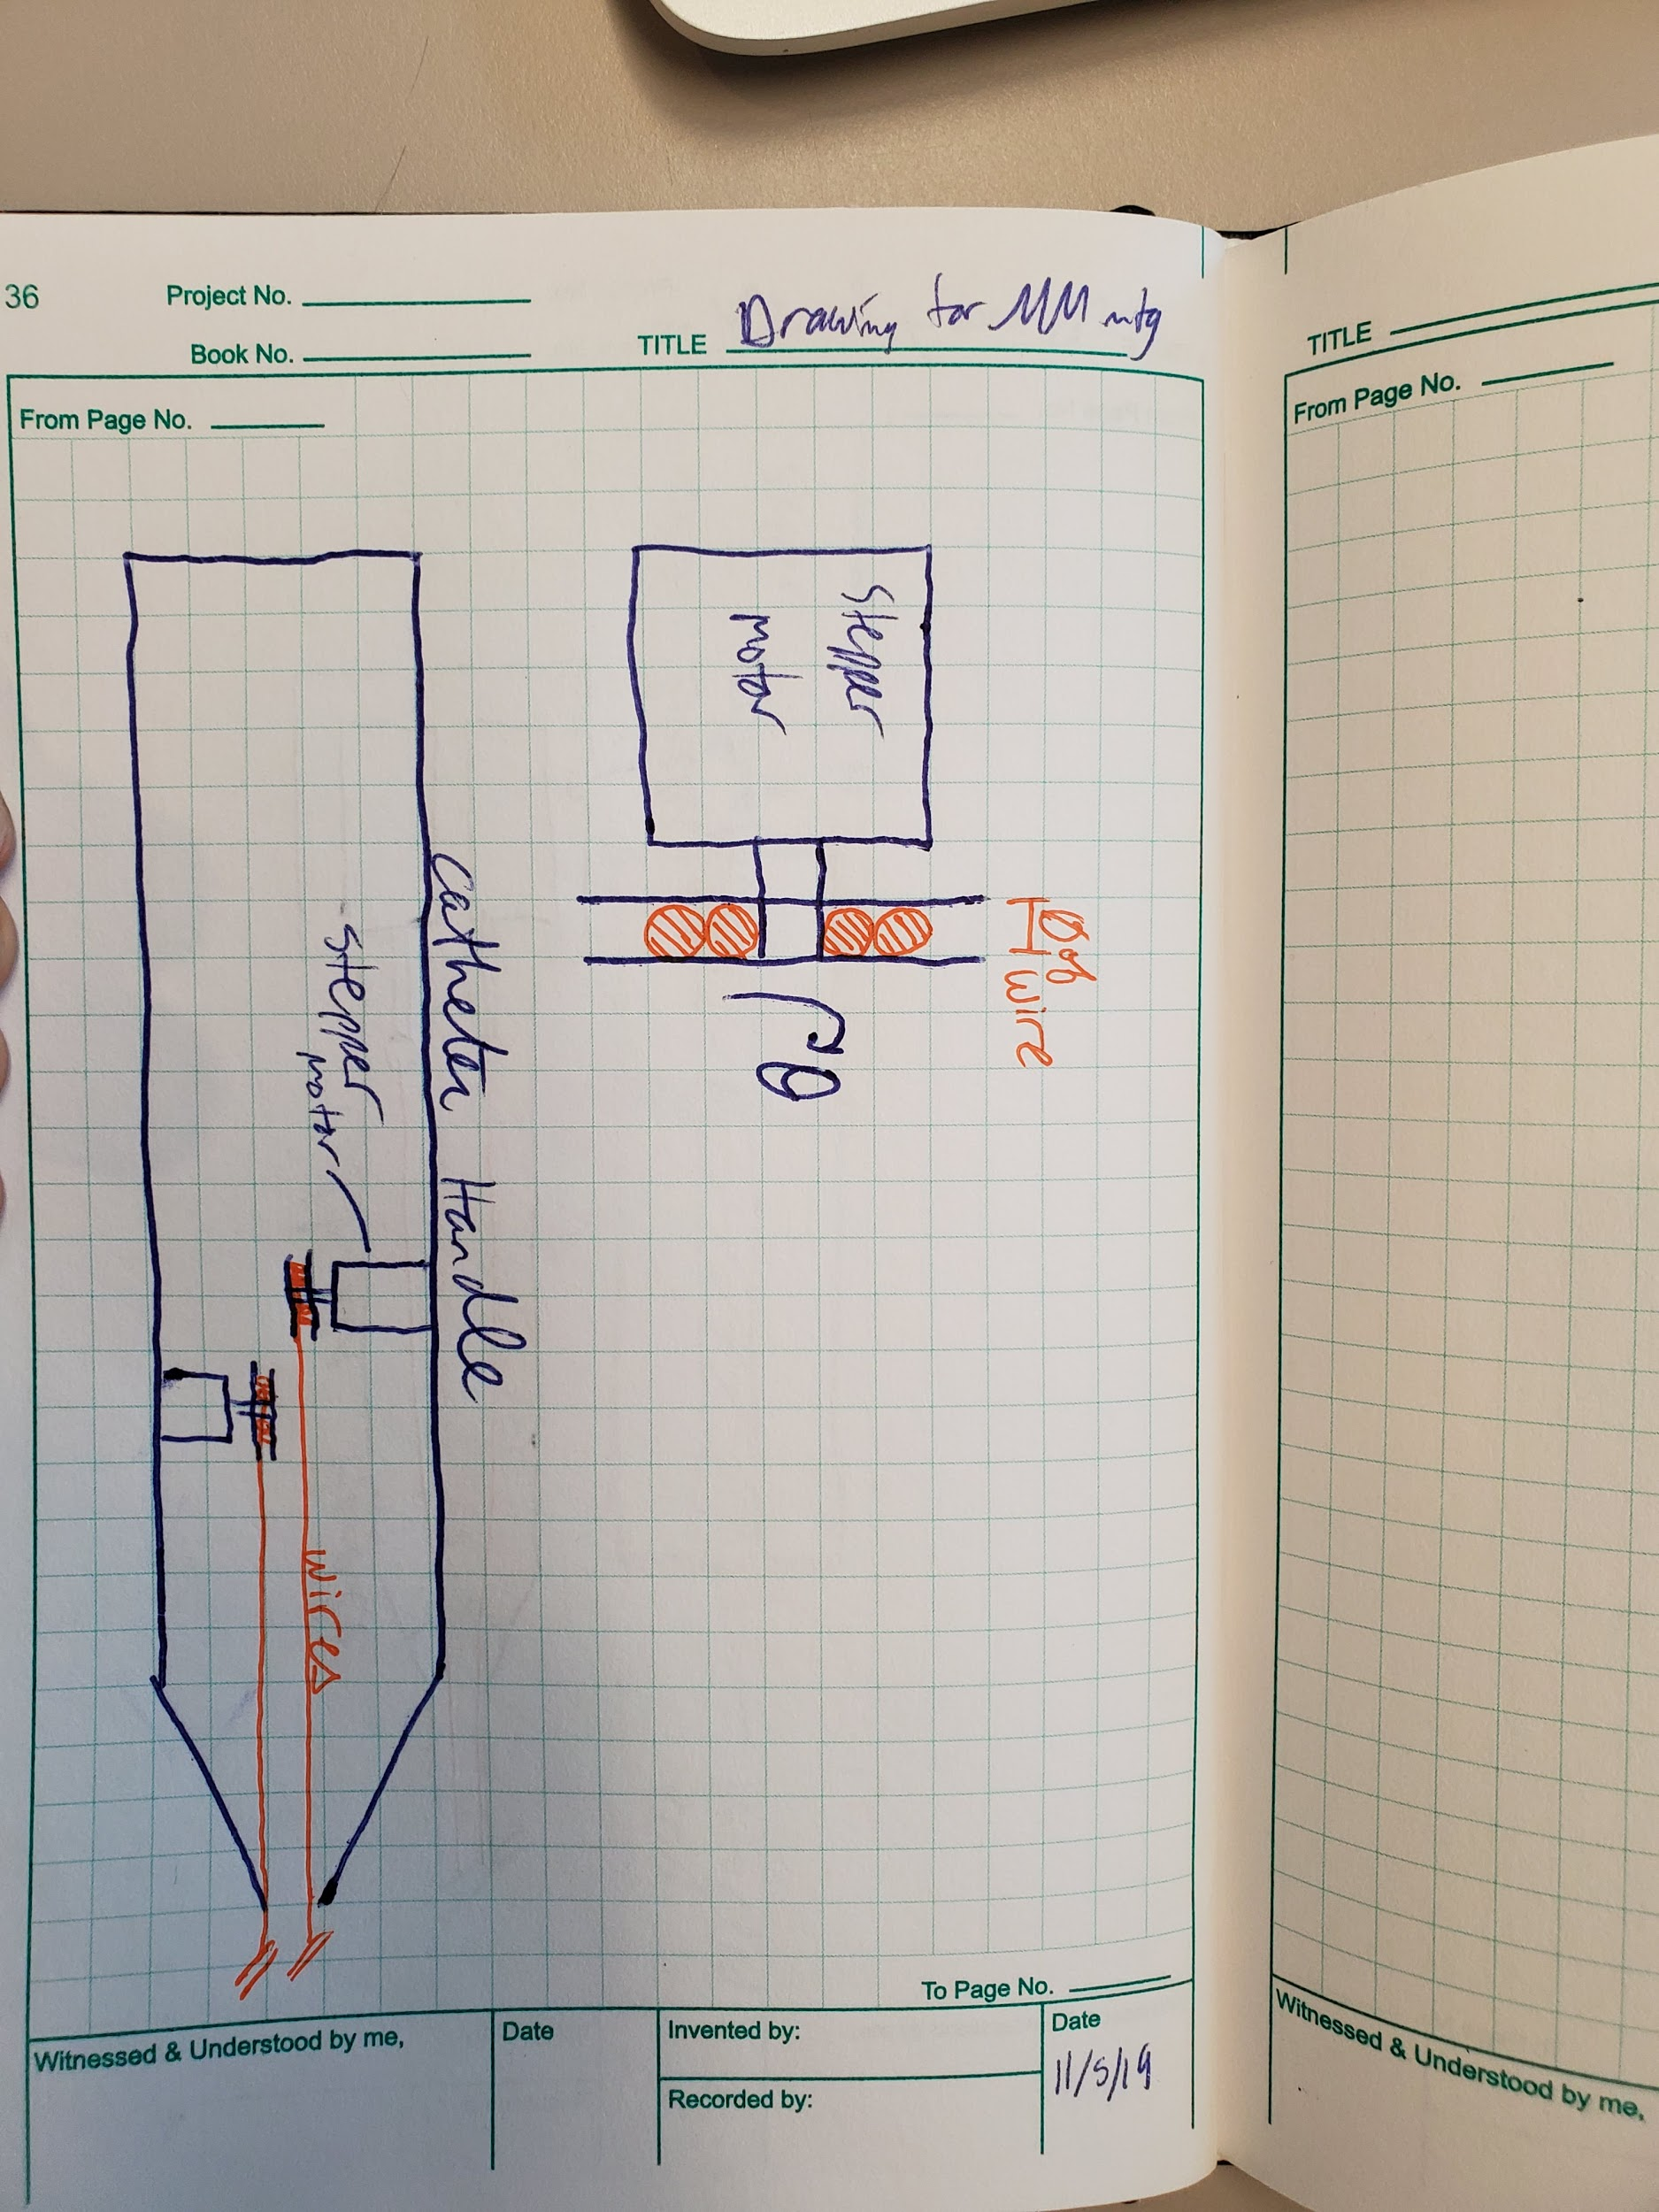 36
Project No.
Book No.
TITLE Drawing for MM mtg
From Page No.
Stepper
motor
Ø of
wire
θ
Catheter Handle
Stepper
motor
wires
To Page No.
Witnessed & Understood by me,
Date
Invented by:
Date
11/5/19
Recorded by:
TITLE
From Page No.
Witnessed & Understood by me,